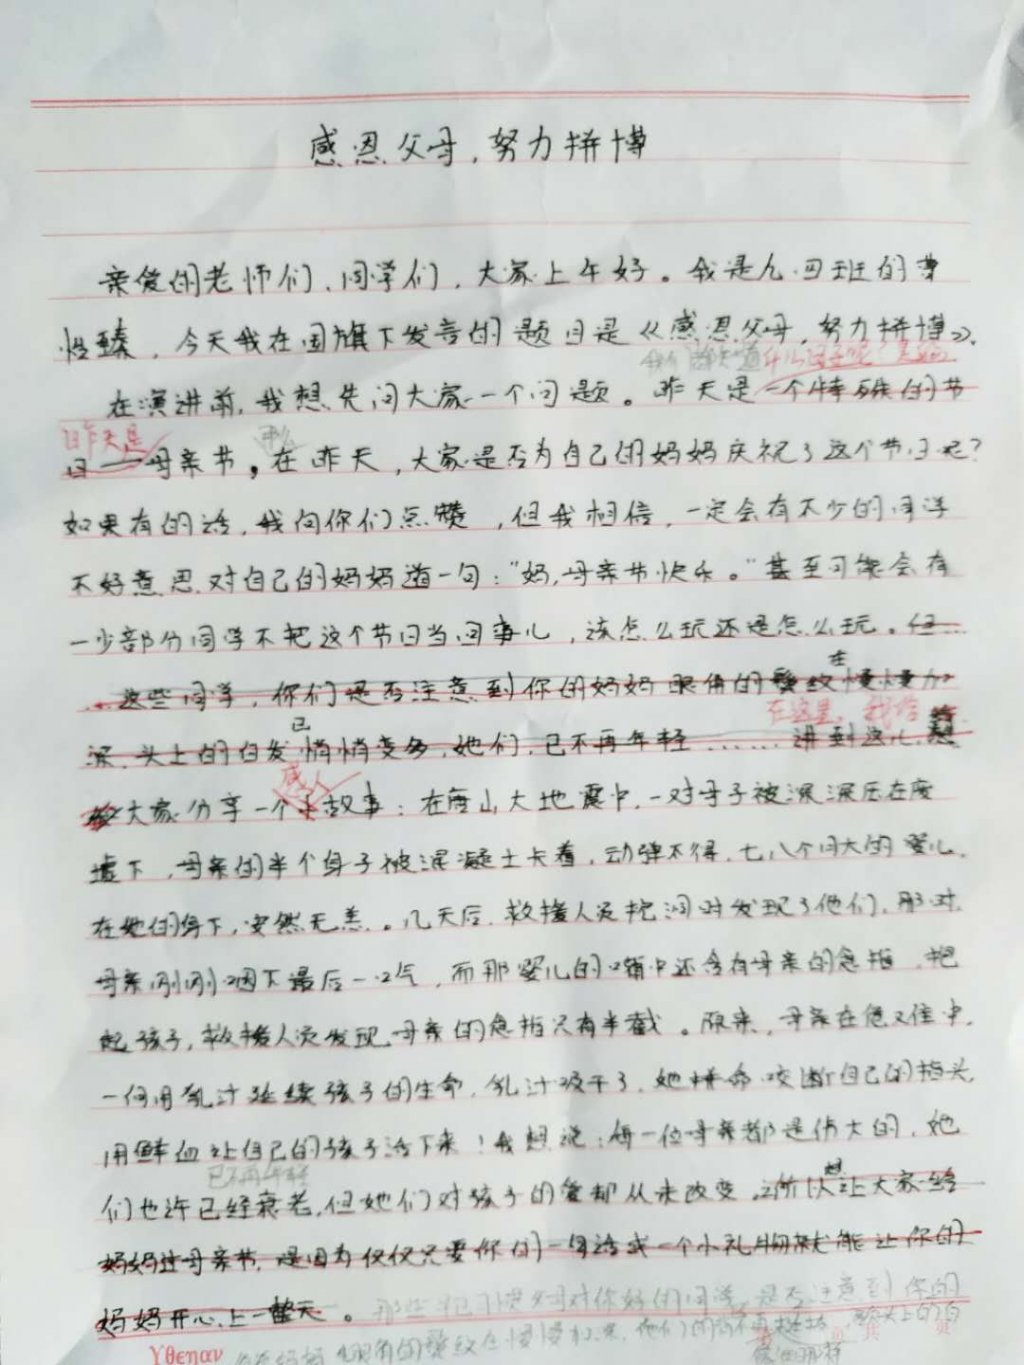 感恩父母，努力拼博
亲爱的老师们、同学们，大家上午好。我是九.四班的曹
怡臻，今天我在国旗下发言的题目是《感恩父母，努力拼博》。
我们都知道什么
在演讲前，我想先问大家一个问题。昨天是一个特殊的节
昨天是 那么
日——母亲节。在昨天，大家是否为自己的妈妈庆祝了这个节日呢？
如果有的话，我向你们点赞，但我相信，一定会有不少的同学
不好意思对自己的妈妈道一句：“妈，母亲节快乐。”甚至可能会有
一少部分同学不把这个节日当回事儿，该怎么玩还是怎么玩。但
在
这些同学，你们是否注意到你的妈妈眼角的皱纹慢慢加
已 在这里，我给
深、头上的白发悄悄变多，她们，已不再年轻……讲到这儿，想
感人
大家分享一个小故事：在唐山大地震中，一对母子被深深压在废
墟下，母亲的半个身子被混凝土卡着，动弹不得，七八个月大的婴儿，
在她的身下，安然无恙。几天后，救援人员挖洞时发现了他们，那时，
母亲刚刚咽下最后一口气，而那婴儿的嘴中还含有母亲的食指，抱
起孩子，救援人员发现母亲的食指只有半截。原来，母亲在危难中，
一何用乳汁延续孩子的生命，乳汁吸干了，她拼命咬断自己的指头，
用鲜血让自己的孩子活下来！我想说：每一位母亲都是伟大的，她
已不再年轻
们也许已经衰老，但她们对孩子的爱却从未改变，
想
所以让大家给
妈妈过母亲节，是因为仅仅只要你的一句话或一个小礼物就能让你的
妈妈开心上一整天。那些 对你好的同学，是否注意到你的
妈妈眼角的皱纹在慢慢加深，他们的 头上的白
Yθεηαν